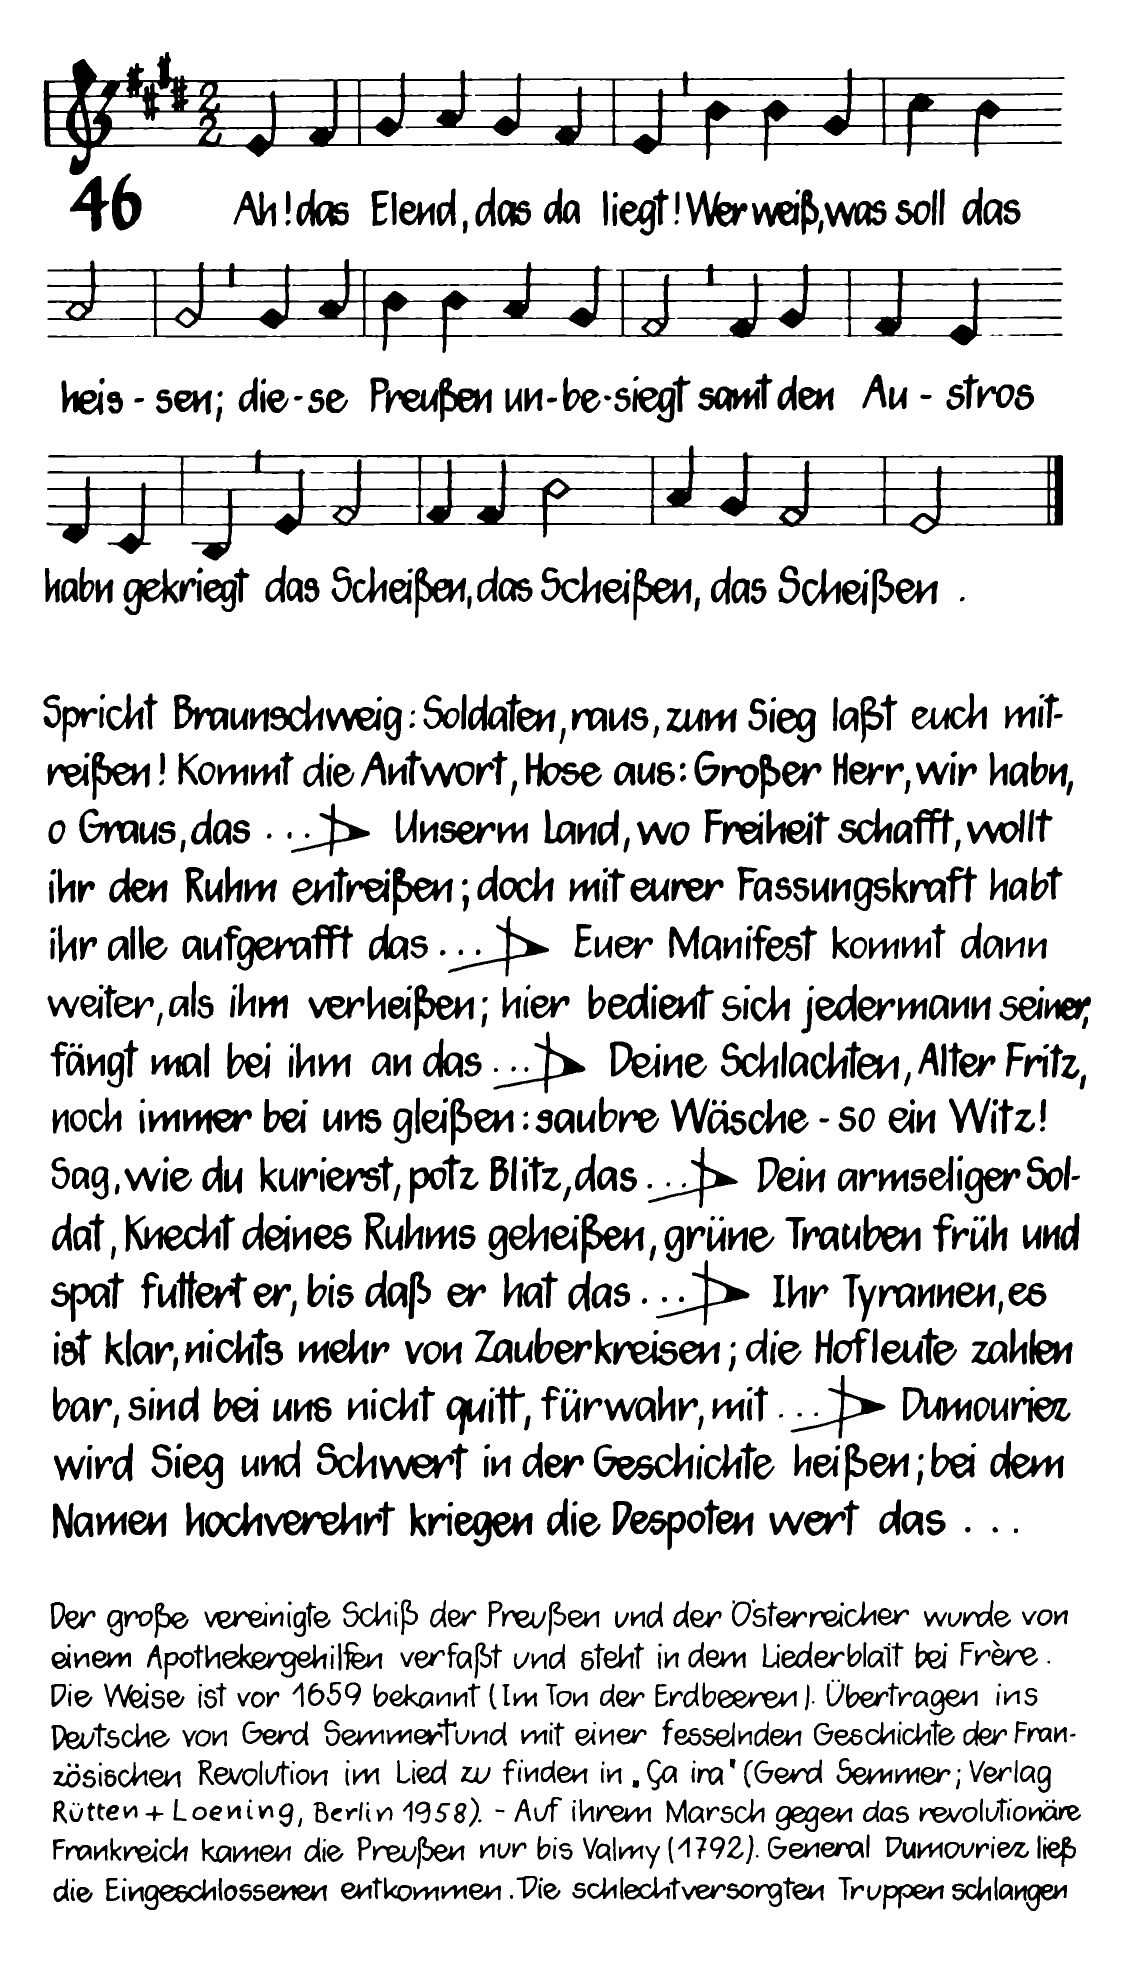 46 Ah! das Elend, das da liegt! Wer weiß, was soll das
heis - sen; die - se Preußen un - be - siegt samt den Au - stros
habn gekriegt das Scheißen, das Scheißen, das Scheißen .
Spricht Braunschweig: Soldaten, raus, zum Sieg laßt euch mit-
reißen! Kommt die Antwort, Hose aus: Großer Herr, wir habn,
o Graus, das ... Unserm Land, wo Freiheit schafft, wollt
ihr den Ruhm entreißen; doch mit eurer Fassungskraft habt
ihr alle aufgerafft das ... Euer Manifest kommt dann
weiter, als ihm verheißen; hier bedient sich jedermann seiner,
fängt mal bei ihm an das ... Deine Schlachten, Alter Fritz,
noch immer bei uns gleißen: saubre Wäsche - so ein Witz!
Sag, wie du kurierst, potz Blitz, das ... Dein armseliger Sol-
dat, Knecht deines Ruhms geheißen, grüne Trauben früh und
spat futtert er, bis daß er hat das ... Ihr Tyrannen, es
ist klar, nichts mehr von Zauberkreisen; die Hofleute zahlen
bar, sind bei uns nicht quitt, fürwahr, mit ... Dumouriez
wird Sieg und Schwert in der Geschichte heißen; bei dem
Namen hochverehrt kriegen die Despoten wert das ...
Der große vereinigte Schiß der Preußen und der Österreicher wurde von
einem Apothekergehilfen verfaßt und steht in dem Liederblatt bei Frère.
Die Weise ist vor 1659 bekannt (Im Ton der Erdbeeren). Übertragen ins
Deutsche von Gerd Semmer† und mit einer fesselnden Geschichte der Fran-
zösischen Revolution im Lied zu finden in „Ça ira" (Gerd Semmer; Verlag
Rütten + Loening, Berlin 1958). - Auf ihrem Marsch gegen das revolutionäre
Frankreich kamen die Preußen nur bis Valmy (1792). General Dumouriez ließ
die Eingeschlossenen entkommen. Die schlechtversorgten Truppen schlangen